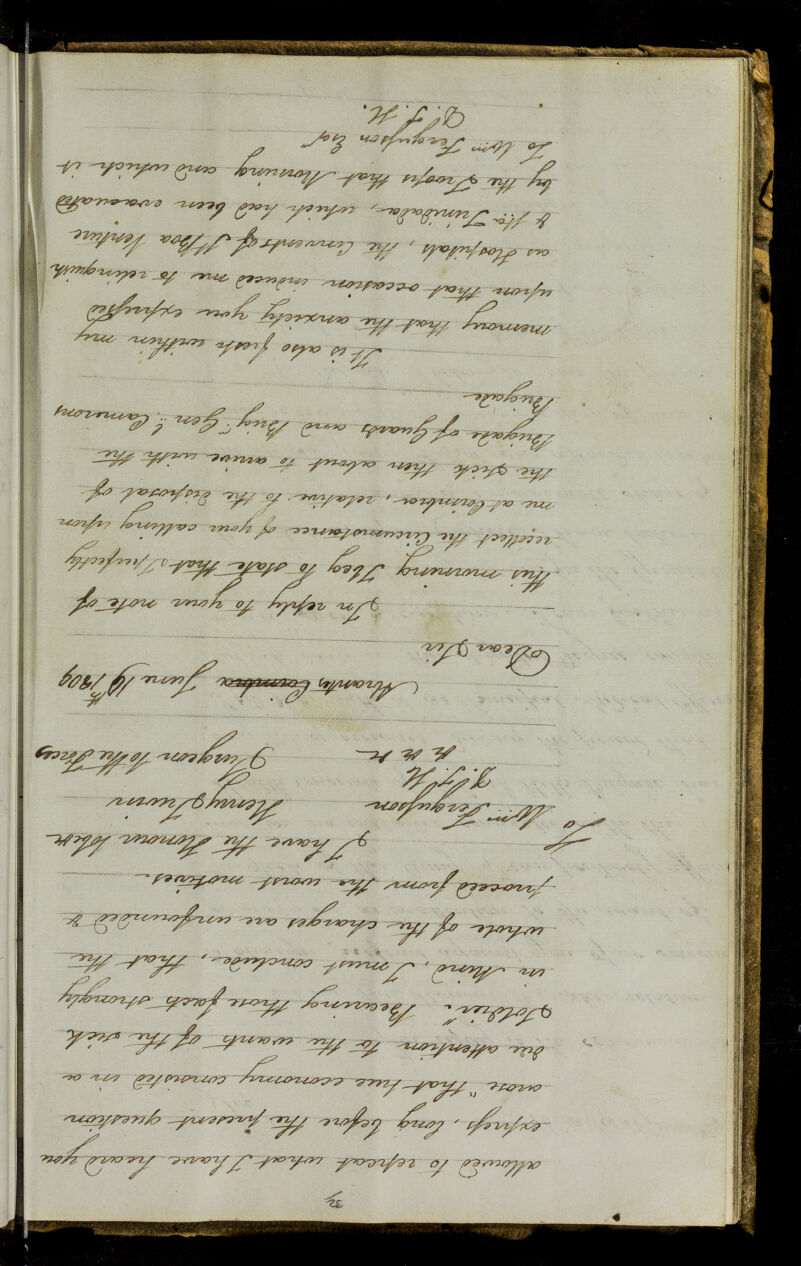 allowed to repeat what I have heard you
express, long before the present question
arose "that true economy consisted in a
due attention to the wants of the sick
Soldier." Bearing those facts strongly
in Mind, I must conclude, that the
whole of the charges are unfounded &
proceed from the worst motives.
I have the Honour to be &c
To Wm. Fergusson Henry Irwin
D.I.H. Surgeon to the Forces
&c &c &c
Abrantes Coimbra June 19th 1809
Dear Sir
In reply to your note of
this morning I beg to state that I perfectly
recollect the Circumstance of your calling upon
me at Coimbra, relative to the disposal of
the sick then about to arrive with the
Brigade of Guards and Brigr. Genl. Camerons
Brigade
It is also fresh within my
memory that the anxiety you expressed
upon that occasion induced me to relinquish
as Hospitals, the Convents of St. Boa Venture
& the Trinidada, which had been evacuated
by the Troops that Morning and which it
To Wm. Fergusson Esqr
D.I.H.